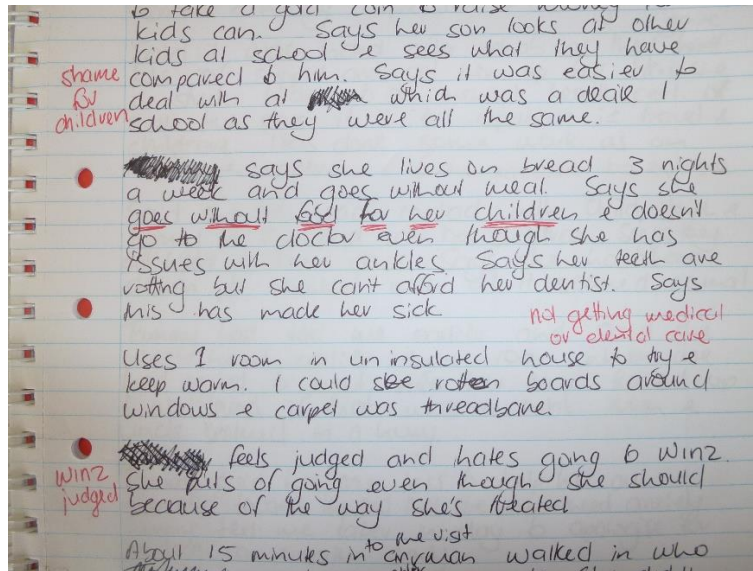 to take a gold coin to raise money for
kids can. Says her son looks at other
kids at school & sees what they have
shame
for
children
compared to him. Says it was easier to
deal with at which was a decile 1
school as they were all the same.
says she lives on bread 3 nights
a week and goes without meal. Says she
goes without food for her children & doesn't
go to the doctor even though she has
issues with her ankles. Says her teeth are
rotting but she can't afford her dentist. Says
this has made her sick
not getting medical
or dental care
Uses 1 room in uninsulated house to try &
keep warm. I could see rotten boards around
windows & carpet was threadbare.
feels judged and hates going to WINZ.
WINZ
judged
She puts of going even though she should
because of the way she's treated
About 15 minutes into the visit
man walked in who